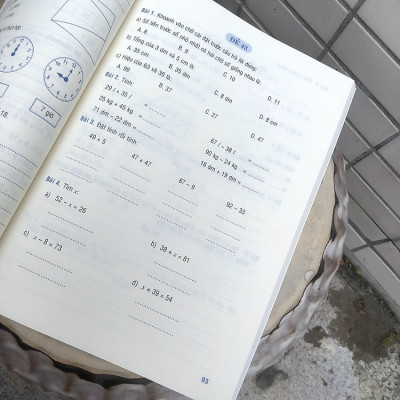 ĐỀ 43
Bài 1. Khoanh vào chữ cái đặt trước câu trả lời đúng:
a) Số liền trước số nhỏ nhất có hai chữ số giống nhau là:
A. 8 B. 9 C. 10 D. 11
b) Tổng của 3 dm và 5 cm là:
A. 35 cm B. 35 dm C. 8 dm D. 8 cm
c) Hiệu của 63 và 36 là:
A. 99 B. 37 C. 27 D. 47
Bài 2. Tính
29 l + 35 l = ........ 67 l – 38 l = ........
25 kg + 45 kg = ........ 90 kg – 24 kg = ........
71 dm – 22 dm = ........ 16 dm + 19 dm = ........
Bài 3. Đặt tính rồi tính
49 + 5 47 + 47 87 – 9 92 – 33
Bài 4. Tìm x:
a) 52 – x = 26 b) 38 + x = 81
c) x – 8 = 73 d) x + 39 = 54
93
7 giờ
18.